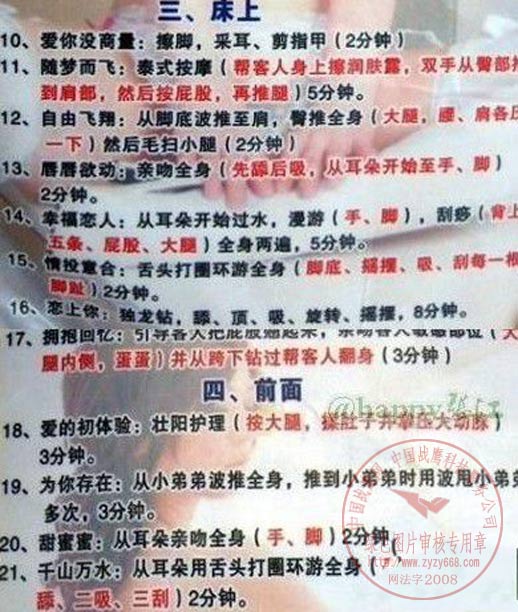 三、床上
10、爱你没商量：擦脚，采耳、剪指甲（2分钟）
11、随梦而飞：泰式按摩（帮客人身上擦润肤露，双手从臀部推
到肩部，然后按屁股，再推腿）5分钟。
12、自由飞翔：从脚底波推至肩，臀推全身（大腿，腰、肩各压
一下）然后毛扫小腿（2分钟）
13、唇唇欲动：亲吻全身（先舔后吸，从耳朵开始至手、脚）
2分钟。
14、幸福恋人：从耳朵开始过水，漫游（手、脚），刮痧（背上
五条、屁股、大腿）全身两遍，5分钟。
15、情投意合：舌头打圈环游全身（脚底、摇摆、吸、刮每一根
脚趾）2分钟。
16、恋上你：独龙钻，舔、顶、吸、旋转、摇摆，8分钟。
17、拥抱回忆：引导客人把屁股翘起来，亲吻客人敏感部位（大
腿内侧，蛋蛋）并从跨下钻过帮客人翻身（3分钟）
四、前面
@happy张江
18、爱的初体验：壮阳护理（按大腿，揉肚子并拿压大动脉）
3分钟。
19、为你存在：从小弟弟波推全身，推到小弟弟时用波甩小弟弟
多次，3分钟。
20、甜蜜蜜：从耳朵亲吻全身（手、脚）2分钟）
21、千山万水：从耳朵用舌头打圈环游全身（
舔、二吸、三刮）2分钟。
中国战鹰科技
图片审核专用章
www.zyzy668.com
网法字2008